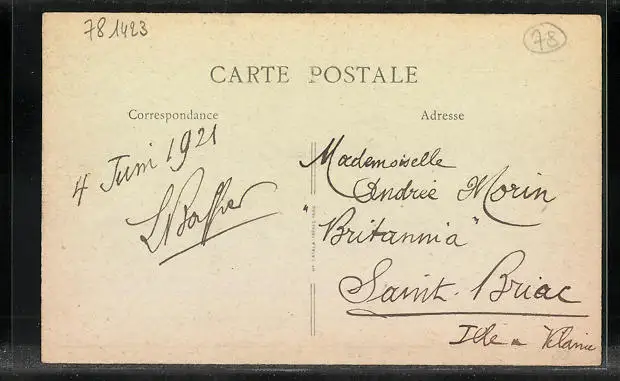 781423
78
CARTE POSTALE
Correspondance
Adresse
4 Juin 1921
Mademoiselle
Andrée Morin
"Britannia"
Saint-Briac
Ille-